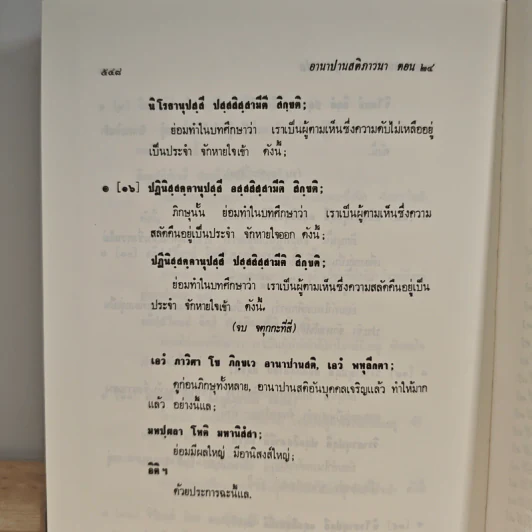 ๕๔๘
อานาปานสติภาวนา ตอน ๒๔
นิโรธานุปสฺสี ปสฺสสิสฺสามีติ สิกฺขติ;
ย่อมทำในบทศึกษาว่า เราเป็นผู้ตามเห็นซึ่งความดับไม่เหลืออยู่
เป็นประจำ จักหายใจเข้า ดังนี้;
๑ [๑๖] ปฏินิสฺสคฺคานุปสฺสี อสฺสสิสฺสามีติ สิกฺขติ;
ภิกษุนั้น ย่อมทำในบทศึกษาว่า เราเป็นผู้ตามเห็นซึ่งความ
สลัดคืนอยู่เป็นประจำ จักหายใจออก ดังนี้;
ปฏินิสฺสคฺคานุปสฺสี ปสฺสสิสฺสามีติ สิกฺขติ;
ย่อมทำในบทศึกษาว่า เราเป็นผู้ตามเห็นซึ่งความสลัดคืนอยู่เป็น
ประจำ จักหายใจเข้า ดังนี้.
(จบ จตุกกะที่สี่)
เอวํ ภาวิตา โข ภิกฺขเว อานาปานสติ, เอวํ พหุลีกตา;
ดูก่อนภิกษุทั้งหลาย, อานาปานสติอันบุคคลเจริญแล้ว ทำให้มาก
แล้ว อย่างนี้แล;
มหปฺผลา โหติ มหานิสํสา;
ย่อมมีผลใหญ่ มีอานิสงส์ใหญ่;
อิติฯ
ด้วยประการฉะนี้แล.